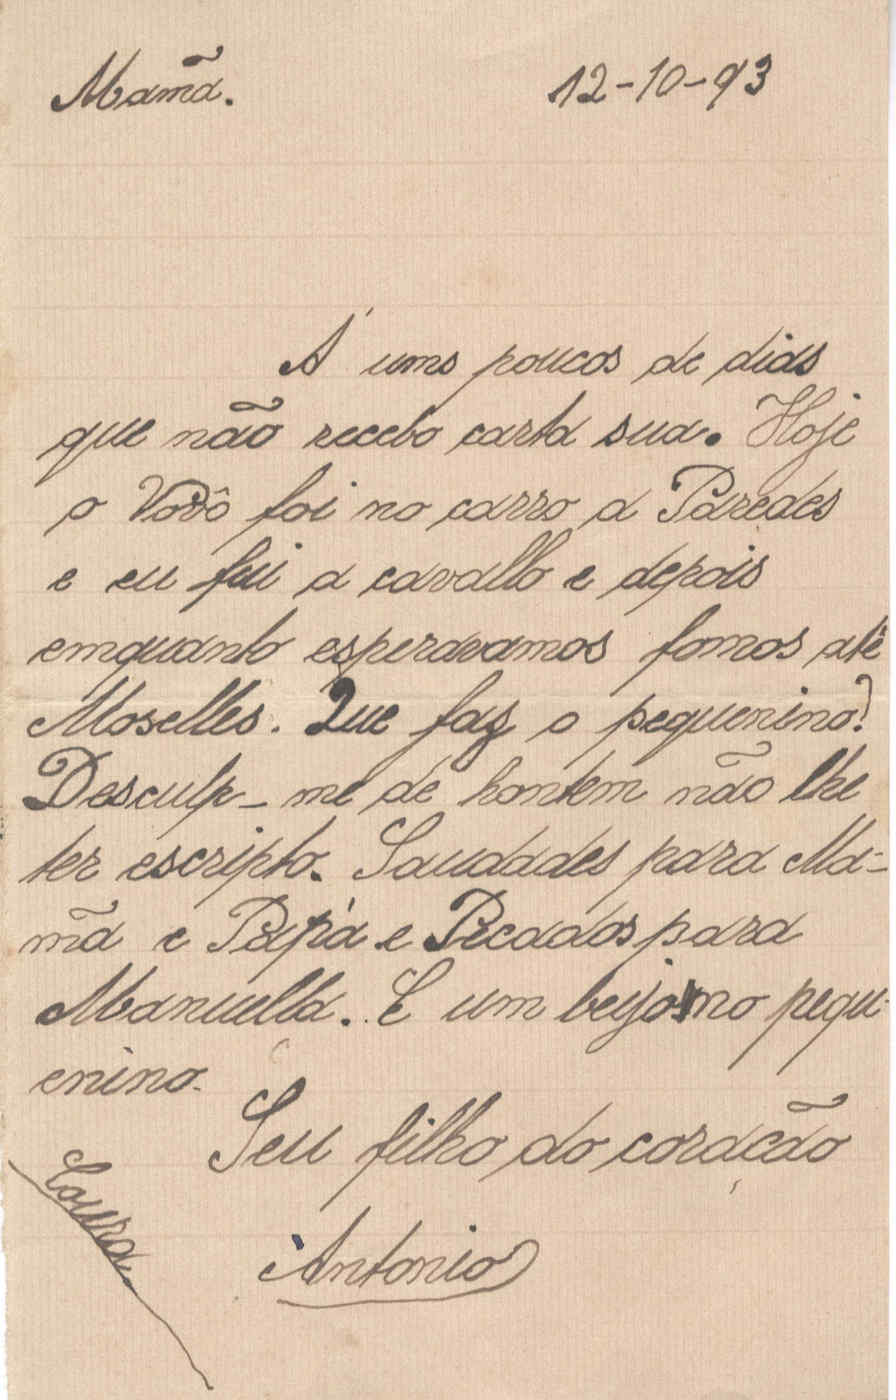 Mamã. 12-10-93
Á uns poucos de dias
que não recebo carta sua. Hoje
o Vovô foi no carro a Paredes
e eu fui a cavallo e depois
emquanto esperavamos fomos até
Moselles. Que faz o pequenino?
Desculp-me de hontem não lhe
ter escripto. Saudades para Ma-
mã e Papá e Recados para
Manuella. E um beijo no pequ-
enino.
Seu filho do coração
Antonio
Coura.